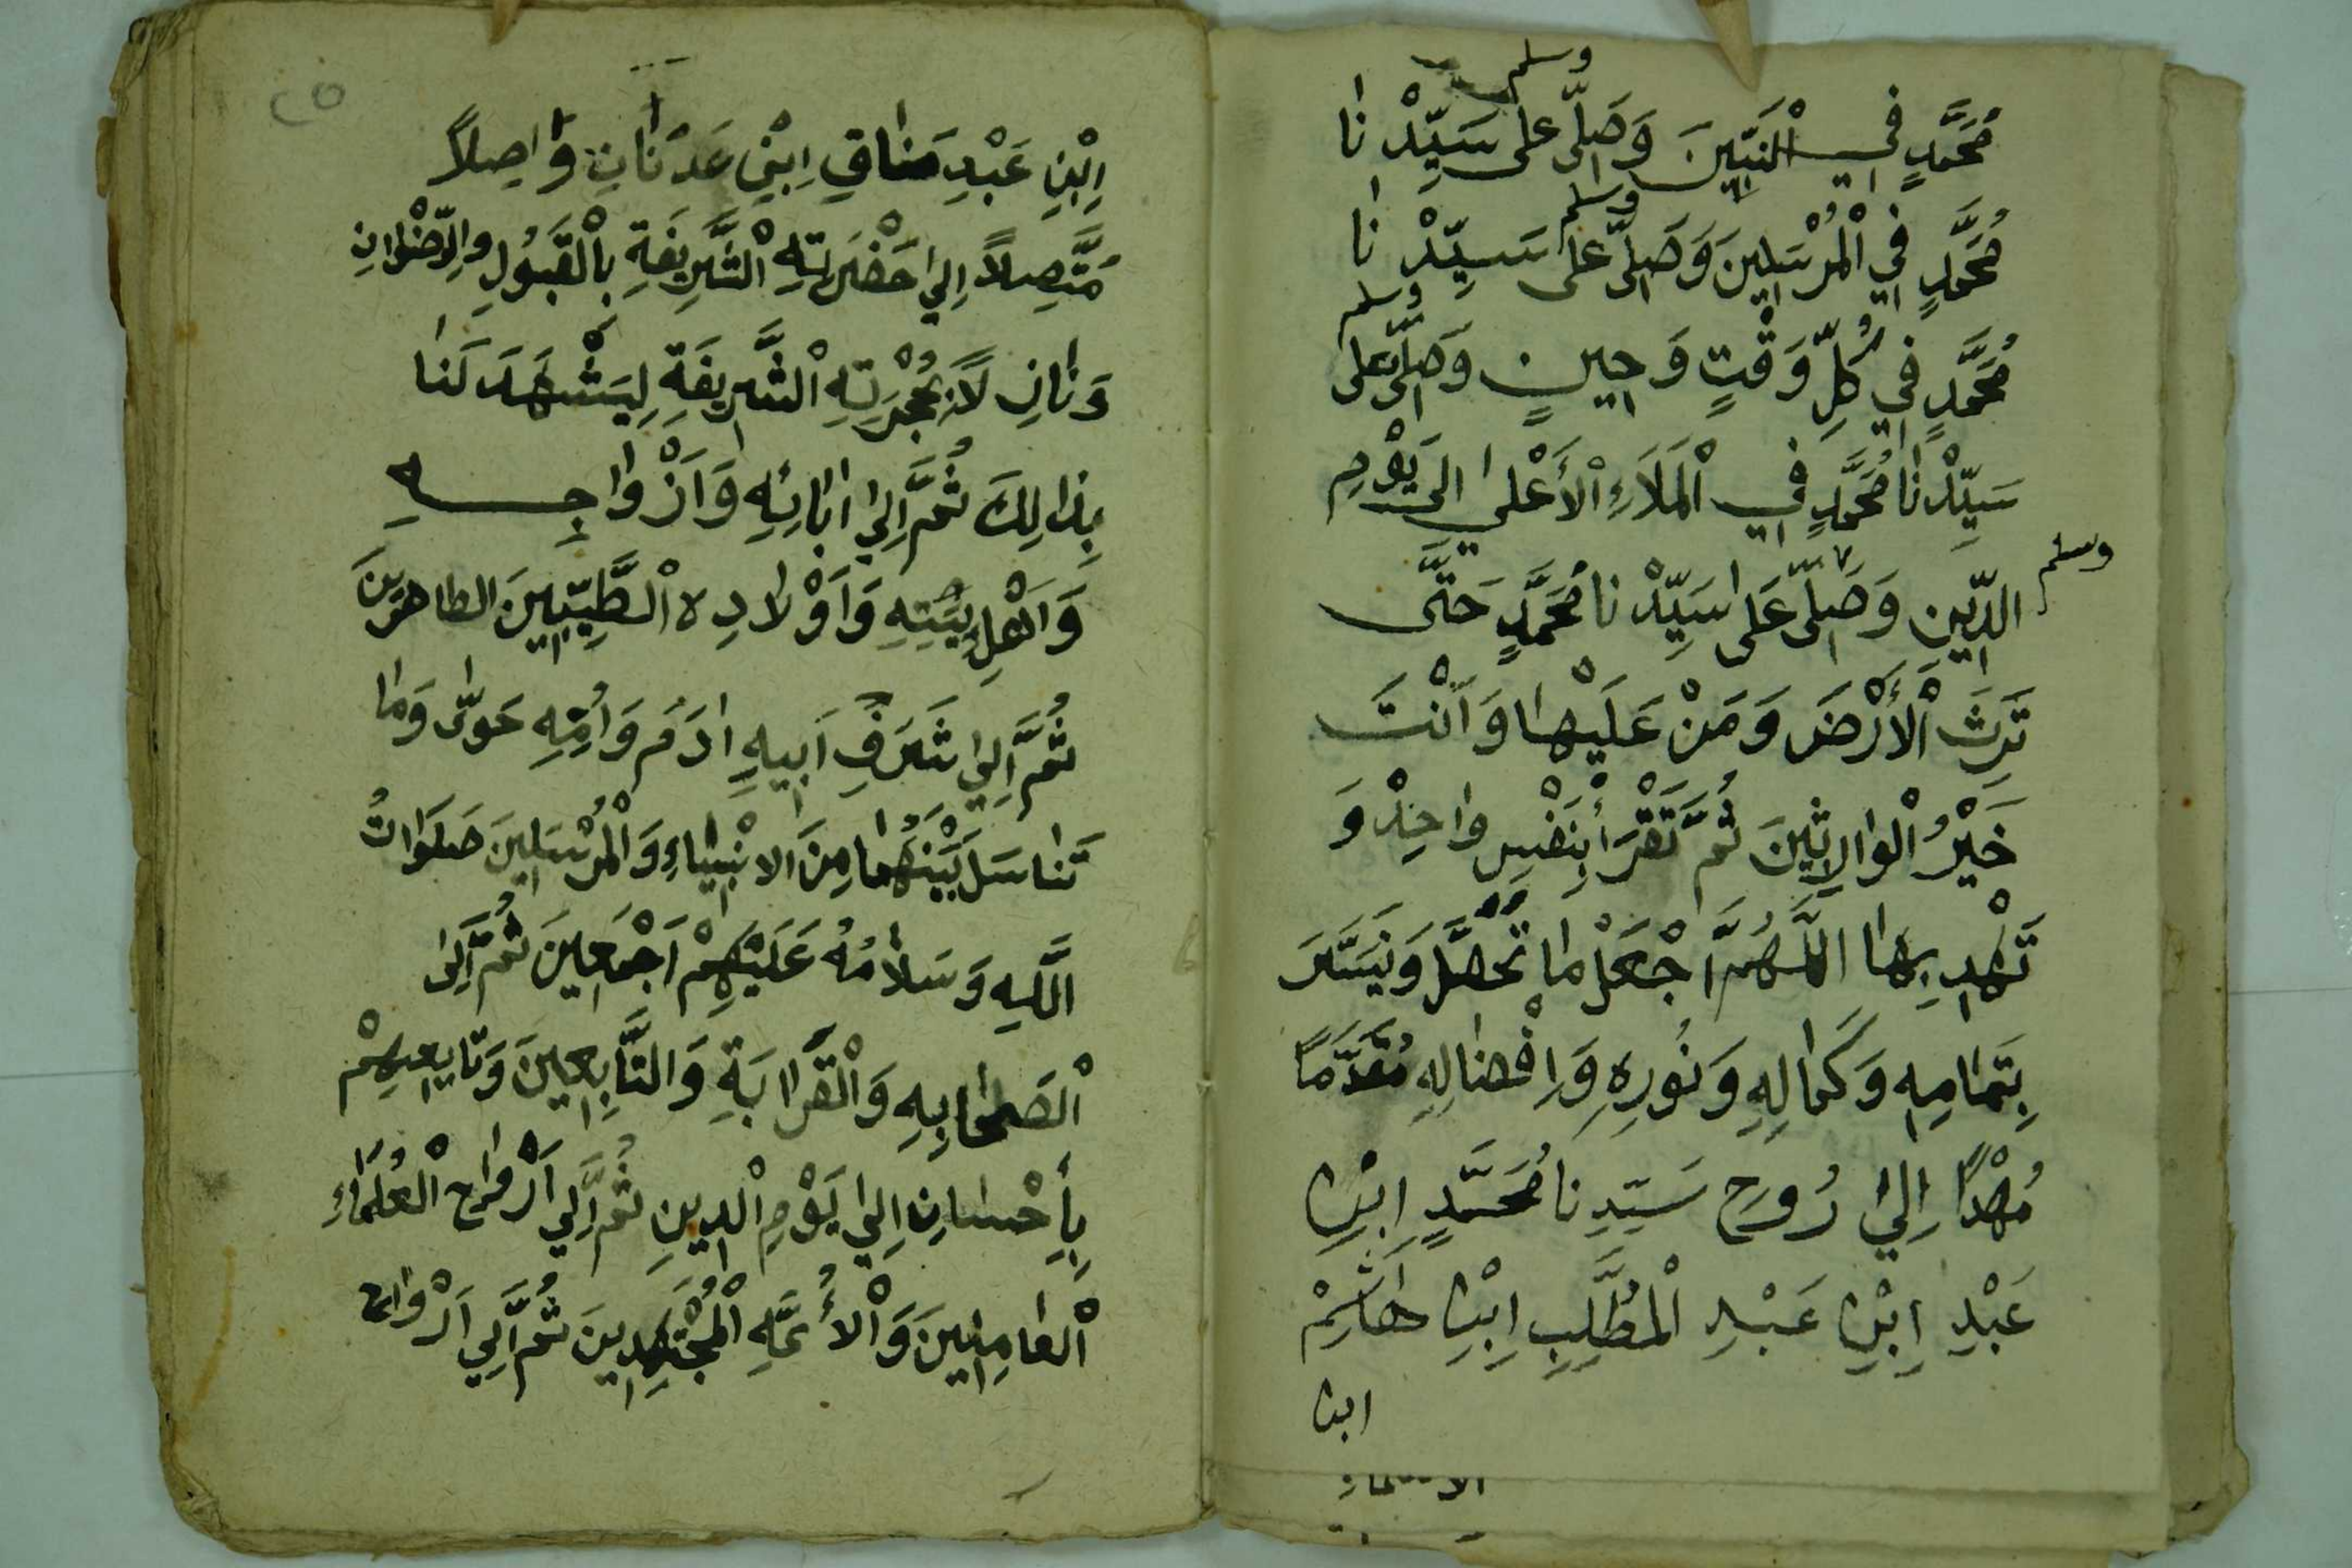 وسلم
مُحَمَّدٍ فِي الْنَبِّينَ وَصَلِّ على سَيِّدْنا
وسلم
مُحَمَّدٍ فِي الْمُرْسَلِينَ وَصَلِّ على سَيِّدْنا
وسلم
مُحَمَّدٍ فِي كُلِّ وَقْتٍ وَحِينٍ وَصَلِّ على
سَيِّدْنا مُحَمَّدٍ فِي الْمَلَاءِ الْأَعْلى الى يَوْمِ
وسلم
الدِّينِ وَصَلِّ عَلى سَيِّدْنا مُحَمَّدٍ حَتَّى
تَرِثَ الْأَرْضَ وَمَنْ عَلَيْها وَاَنْتَ
خَيْرُ الْوالِاثِينَ ثُمَّ تَقْرَأْ بِنَفْسِ واحِدْ وَ
تَهْدِ بِها اللَّهُمَّ اجْعَلْ ما تحصَّل وَتَيَسَّرَ
بِتَمامِهِ وَكَمالِهِ وَنُورِهِ وَاِفْضالِهِ مُقَدَّمًا
مُهْدًا اِلِيٰ رُوحِ سَيِّدِنا مُحَمَّدٍ ابْنِ
عَبْدِ ابْنِ عَبْدِ الْمُطَّلِبِ ابْنِ هاشِمْ
ابن
٢٥
اِبْنِ عَبْدِ مَنافِ اِبْنِ عَدْنانِ وَاصِلاً
مُتَّصِلاً اِلِيٰ حَضْرَتِهِ الْشَّرِيفَةِ بِالْقَبُولِ والرِّضْوانِ
وَنانِ لاً بحُجْرَتِهِ الْشَّرِيفَةِ لِيَشْهَدَ لَنا
بِذالِكَ ثُمَّ اِلِيٰ اٰبائِهِ وَاَزْواجِهِ
وَاَهْلِ بَيْتِهِ وَاَوْلادِهِ الْطَّيِّبِينَ الطاهرِينَ
ثُمَّ اِلِيٰ شَرَفِ اَبِيهِ اٰدَمَ وَاُمِّهِ حَوَّىٰ وَما
تَناسَلَ بَيْنَهُما مِنَ الانْبِياءِ وَالْمُرْسَلِينَ صَلَواتُ
اللَّهِ وَسَلامُهُ عَلَيْهِمْ اَجْمَعِينَ ثُمَّ اِلَى
الْصَحابِهِ وَالْقَرابَةِ وَالتَّابِعِينَ وَتابِعِهِمْ
بِأِحْسانِ اِلِيٰ يَوْمِ الْدِينِ ثُمَّ اِلِي اَرْواحِ الْعُلَماءِ
الْعامِلِينَ وَالْأُئمَّهِ الْمُجْتَهِدِينَ ثُمَّ اِلِي اَرْواحِ